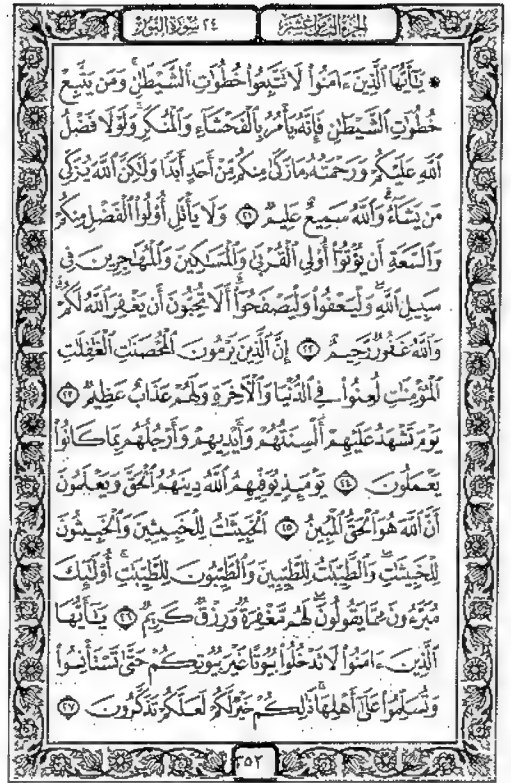 الجُزْءُ الثَّامِنَ عَشَرَ
٢٤ سُورَةُ النُّورِ
* يَٰٓأَيُّهَا ٱلَّذِينَ ءَامَنُوا۟ لَا تَتَّبِعُوا۟ خُطُوَٰتِ ٱلشَّيْطَٰنِ ۚ وَمَن يَتَّبِعْ
خُطُوَٰتِ ٱلشَّيْطَٰنِ فَإِنَّهُۥ يَأْمُرُ بِٱلْفَحْشَآءِ وَٱلْمُنكَرِ ۚ وَلَوْلَا فَضْلُ
ٱللَّهِ عَلَيْكُمْ وَرَحْمَتُهُۥ مَا زَكَىٰ مِنكُم مِّنْ أَحَدٍ أَبَدًا وَلَٰكِنَّ ٱللَّهَ يُزَكِّى
مَن يَشَآءُ ۗ وَٱللَّهُ سَمِيعٌ عَلِيمٌ ٢١ وَلَا يَأْتَلِ أُو۟لُوا۟ ٱلْفَضْلِ مِنكُمْ
وَٱلسَّعَةِ أَن يُؤْتُوٓا۟ أُو۟لِى ٱلْقُرْبَىٰ وَٱلْمَسَٰكِينَ وَٱلْمُهَٰجِرِينَ فِى
سَبِيلِ ٱللَّهِ ۖ وَلْيَعْفُوا۟ وَلْيَصْفَحُوٓا۟ ۗ أَلَا تُحِبُّونَ أَن يَغْفِرَ ٱللَّهُ لَكُمْ ۗ
وَٱللَّهُ غَفُورٌ رَّحِيمٌ ٢٢ إِنَّ ٱلَّذِينَ يَرْمُونَ ٱلْمُحْصَنَٰتِ ٱلْغَٰفِلَٰتِ
ٱلْمُؤْمِنَٰتِ لُعِنُوا۟ فِى ٱلدُّنْيَا وَٱلْءَاخِرَةِ وَلَهُمْ عَذَابٌ عَظِيمٌ ٢٣
يَوْمَ تَشْهَدُ عَلَيْهِمْ أَلْسِنَتُهُمْ وَأَيْدِيهِمْ وَأَرْجُلُهُم بِمَا كَانُوا۟
يَعْمَلُونَ ٢٤ يَوْمَئِذٍ يُوَفِّيهِمُ ٱللَّهُ دِينَهُمُ ٱلْحَقَّ وَيَعْلَمُونَ
أَنَّ ٱللَّهَ هُوَ ٱلْحَقُّ ٱلْمُبِينُ ٢٥ ٱلْخَبِيثَٰتُ لِلْخَبِيثِينَ وَٱلْخَبِيثُونَ
لِلْخَبِيثَٰتِ ۖ وَٱلطَّيِّبَٰتُ لِلطَّيِّبِينَ وَٱلطَّيِّبُونَ لِلطَّيِّبَٰتِ ۚ أُو۟لَٰٓئِكَ
مُبَرَّءُونَ مِمَّا يَقُولُونَ ۖ لَهُم مَّغْفِرَةٌ وَرِزْقٌ كَرِيمٌ ٢٦ يَٰٓأَيُّهَا
ٱلَّذِينَ ءَامَنُوا۟ لَا تَدْخُلُوا۟ بُيُوتًا غَيْرَ بُيُوتِكُمْ حَتَّىٰ تَسْتَأْنِسُوا۟
وَتُسَلِّمُوا۟ عَلَىٰٓ أَهْلِهَا ۚ ذَٰلِكُمْ خَيْرٌ لَّكُمْ لَعَلَّكُمْ تَذَكَّرُونَ ٢٧
٣٥٢